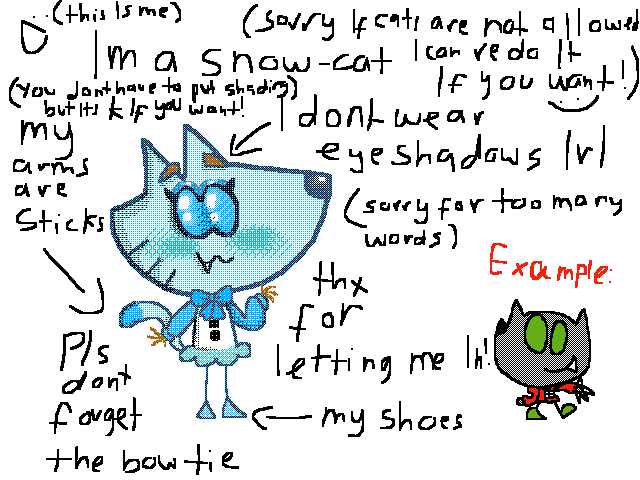 (this Is me)
(sorry If cats are not allowed
I can redo It
If you want!)
Im a snow-cat
(You dont have to put shading)
but Its k If you want!
I dont wear
eyeshadows Irl
my
arms
are
sticks
(sorry for too many
words)
Example:
thx
for
letting me In!
Pls
dont
forget
the bow tie
my shoes